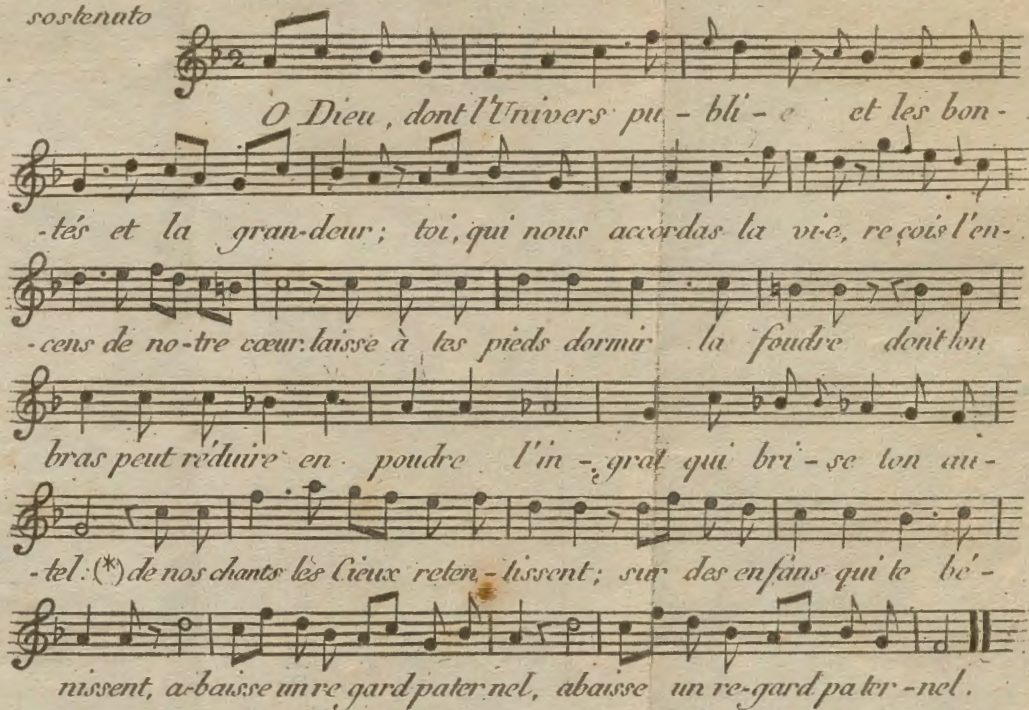 sostenuto
2
O Dieu, dont l'Univers pu - bli - e et les bon-
-tés et la gran-deur; toi, qui nous accordas la vi-e, re çois l'en-
-cens de no-tre cœur. laisse à tes pieds dormir la foudre dont ton
bras peut réduire en poudre l'in - grat qui bri - se ton au-
-tel: (*) de nos chants les Cieux reten - tissent; sur des enfans qui te bé-
nissent, a-baisse un re gard pater nel, abaisse un re-gard pa ter - nel.